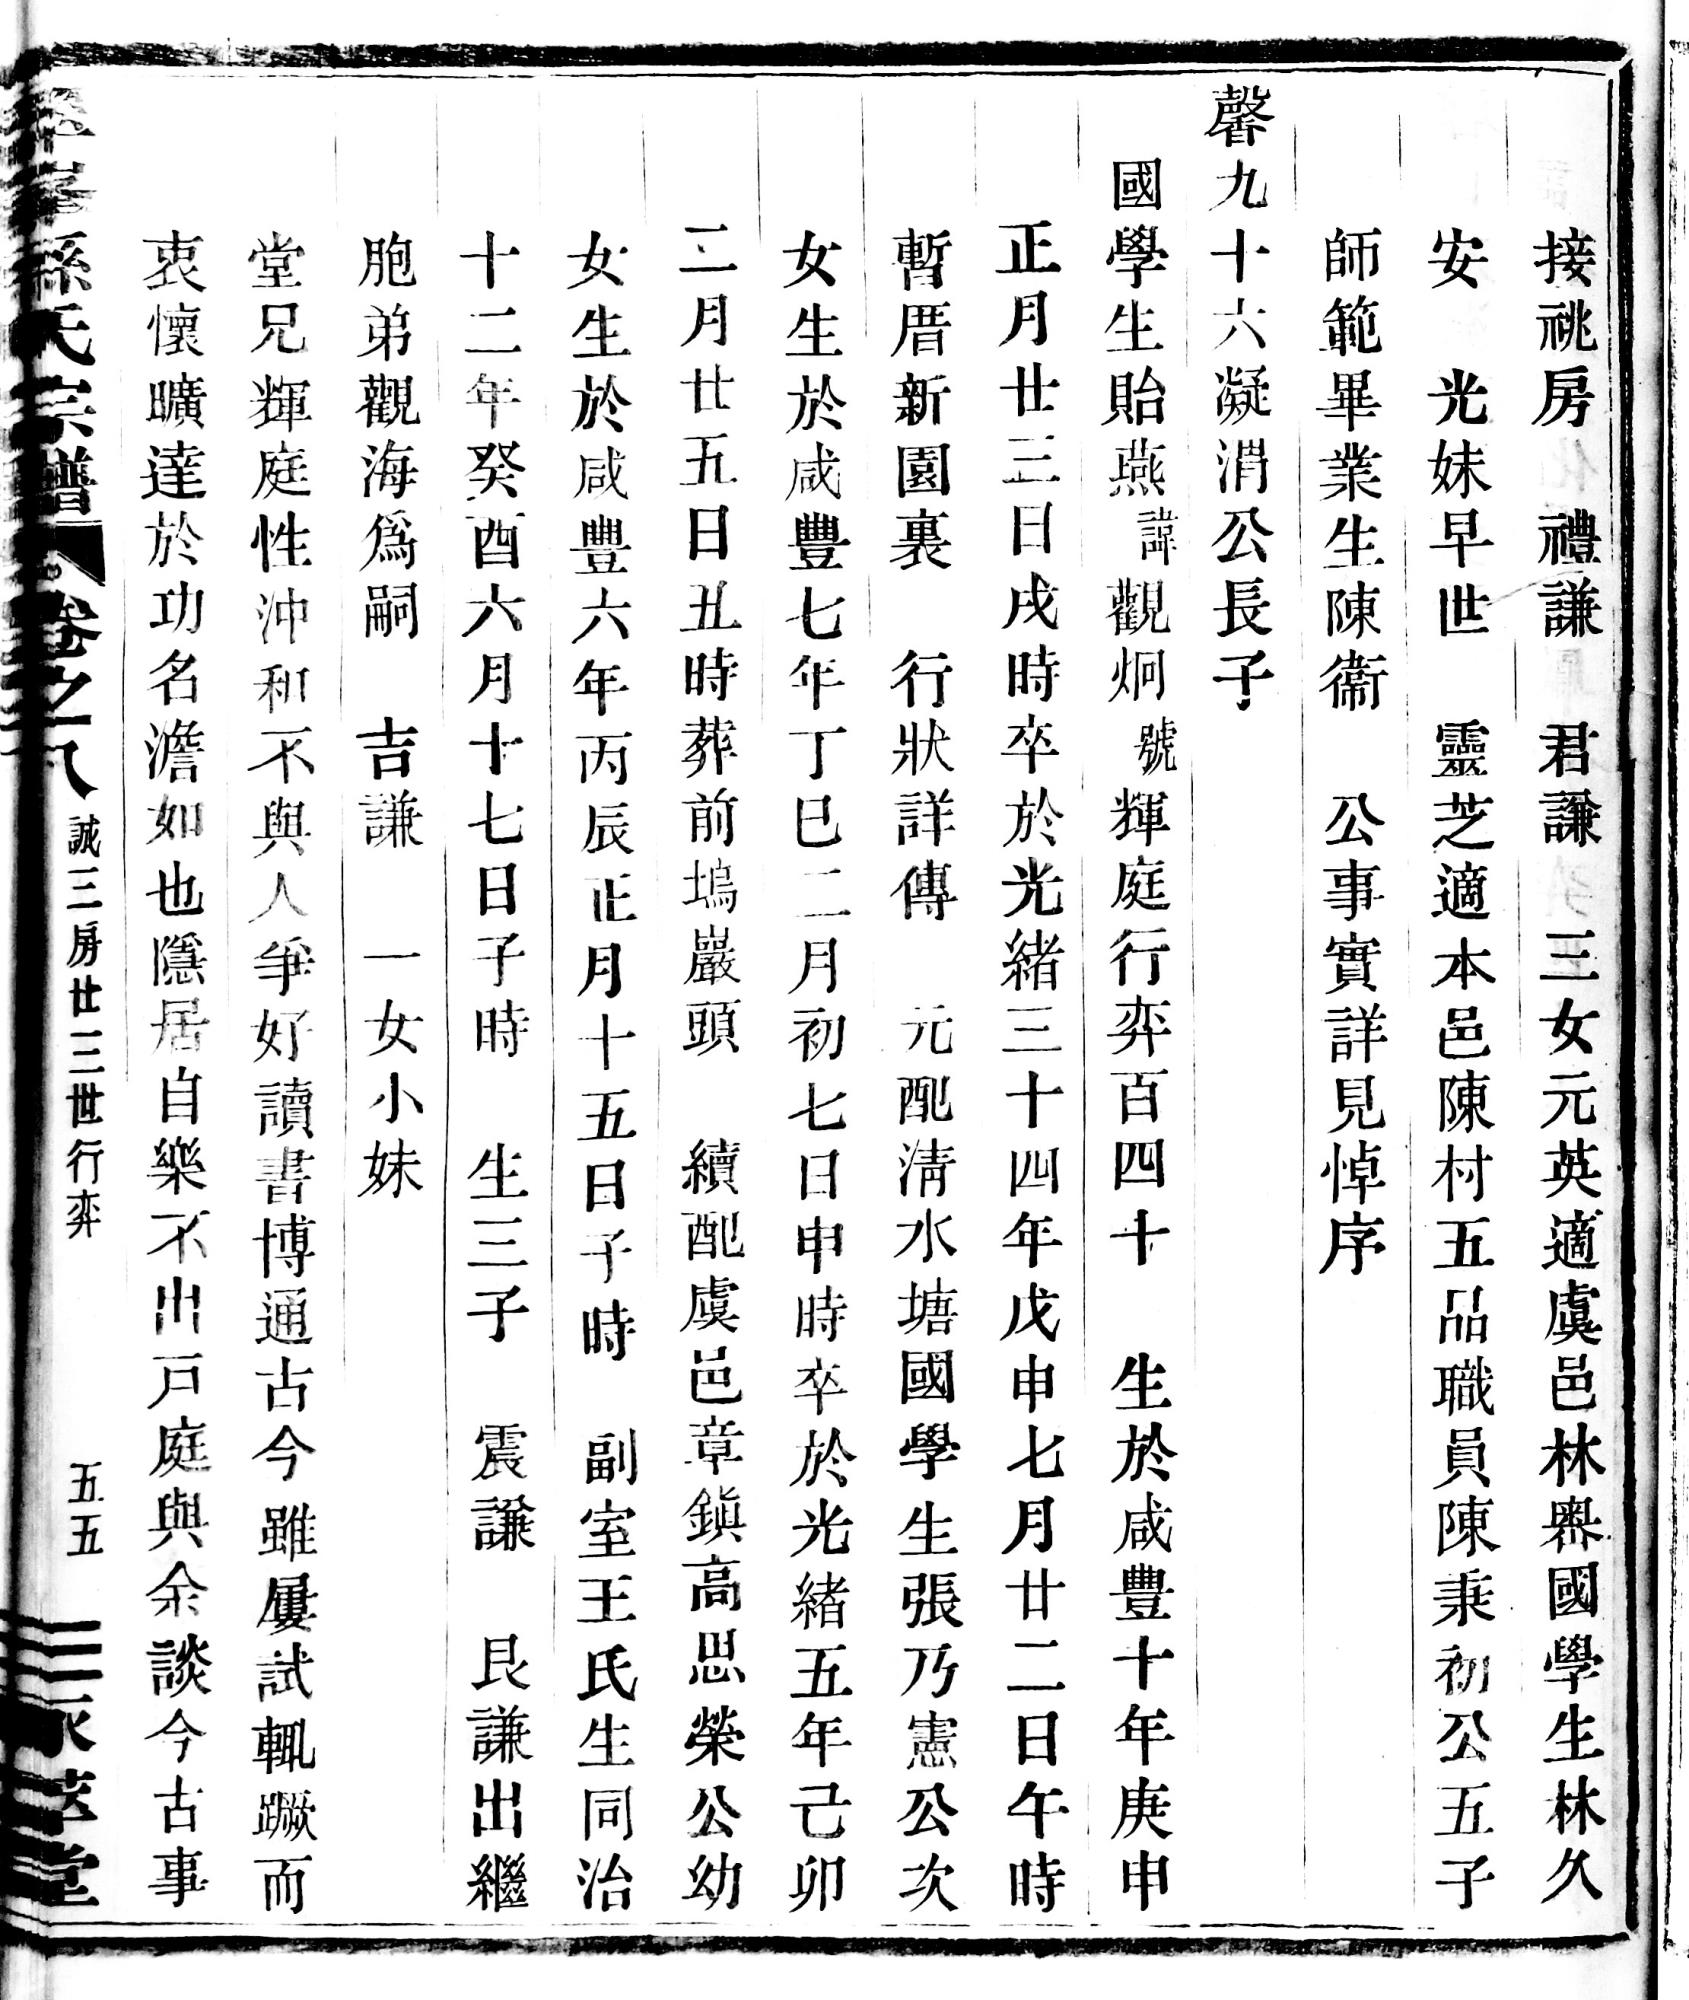 接祧房　禮謙　君謙　三女元英適虞邑林嶴國學生林久
安　光妹早世　靈芝適本邑陳村五品職員陳秉初公五子
師範畢業生陳衞　公事實詳見悼序
馨九十六凝渭公長子
國學生貽燕諱觀炯號輝庭行弈百四十　生於咸豐十年庚申
正月廿三日戌時卒於光緒三十四年戊申七月廿二日午時
暫厝新園裏　行狀詳傳　元配淸水塘國學生張乃憲公次
女生於咸豐七年丁巳二月初七日申時卒於光緒五年己卯
二月廿五日丑時葬前塢巖頭　續配虞邑章鎭高思榮公幼
女生於咸豐六年丙辰正月十五日子時　副室王氏生同治
十二年癸酉六月十七日子時　生三子　震謙　艮謙出繼
胞弟觀海爲嗣　吉謙　一女小妹
堂兄輝庭性沖和不與人爭好讀書博通古今雖屢試輒蹶而
衷懷曠達於功名澹如也隱居自樂不出戸庭與余談今古事
孫氏宗譜　卷之十八　誠三房廿三世行弈　五五　萃堂